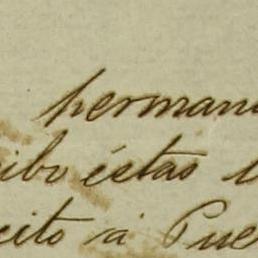 herman
ibo éstas
cito á Pue